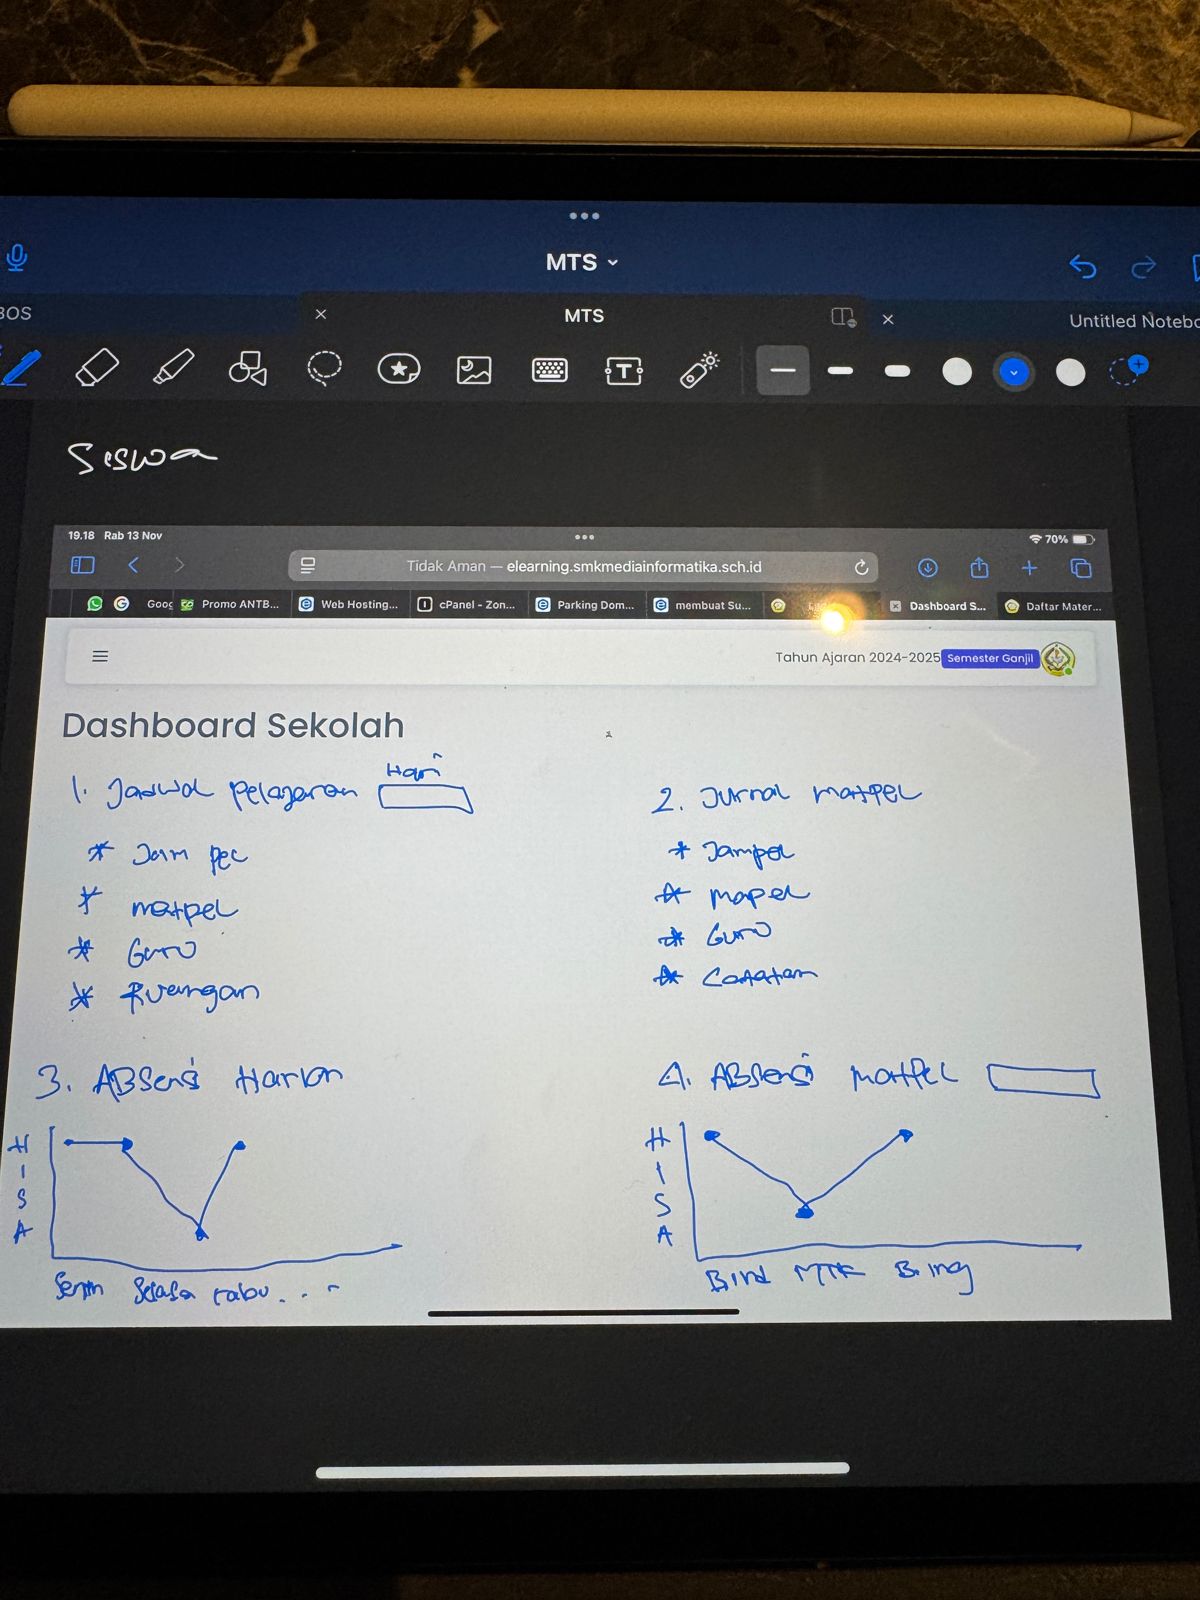 MTS
BOS
MTS
Untitled Notebo
Siswa
19.18 Rab 13 Nov
70%
Tidak Aman — elearning.smkmediainformatika.sch.id
Goog
Promo ANTB...
Web Hosting...
cPanel - Zon...
Parking Dom...
membuat Su...
Dashboard S...
Daftar Mater...
Tahun Ajaran 2024-2025 Semester Ganjil
Dashboard Sekolah
1. Jadwal pelajaran Hari
* Jam pel
* matpel
* Guru
* Ruangan
2. Jurnal matpel
* Jampel
* mapel
* Guru
* Catatan
3. ABSensi Harian
H
I
S
A
Senin Selasa rabu . . .
4. ABSensi matpel
H
I
S
A
B.ind MTK B.ing